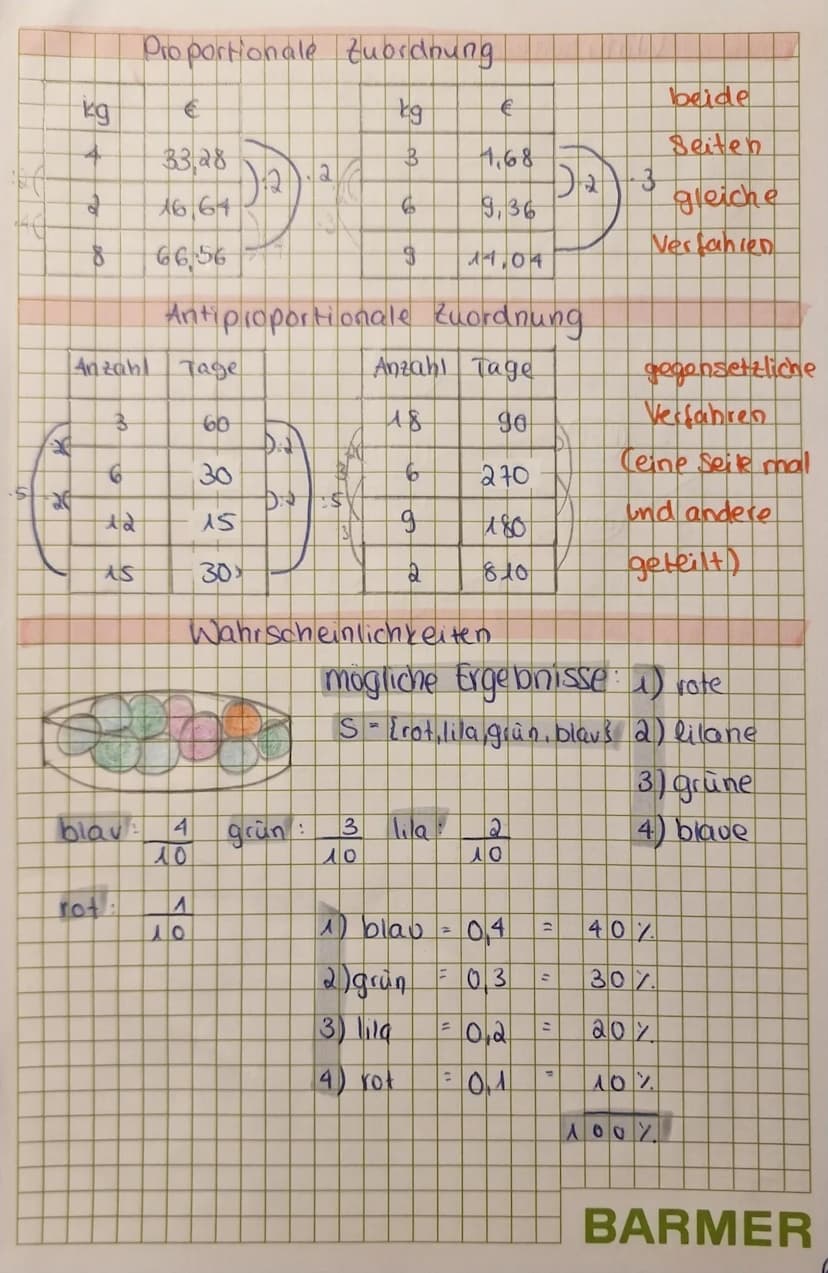 Proportionale Zuordnung
kg €
4 33,28
2 16,64
8 66,56
:2 · 2
kg €
3 4,68
6 9,36
9 14,04
· 2 · 3
beide
Seiten
gleiche
Verfahren
Antiproportionale Zuordnung
Anzahl Tage
3 60
6 30
12 15
15 30
·5 :2 :2 :5
Anzahl Tage
18 90
6 270
9 180
2 810
gegensetzliche
Verfahren
(eine Seite mal
und andere
geteilt)
Wahrscheinlichkeiten
mögliche Ergebnisse: 1) rote
S = {rot, lila, grün, blau} 2) lilane
3) grüne
4) blaue
blau: 4/10 grün: 3/10 lila: 2/10
rot: 1/10
1) blau = 0,4 = 40 %
2) grün = 0,3 = 30 %
3) lila = 0,2 = 20 %
4) rot = 0,1 = 10 %
100 %
BARMER